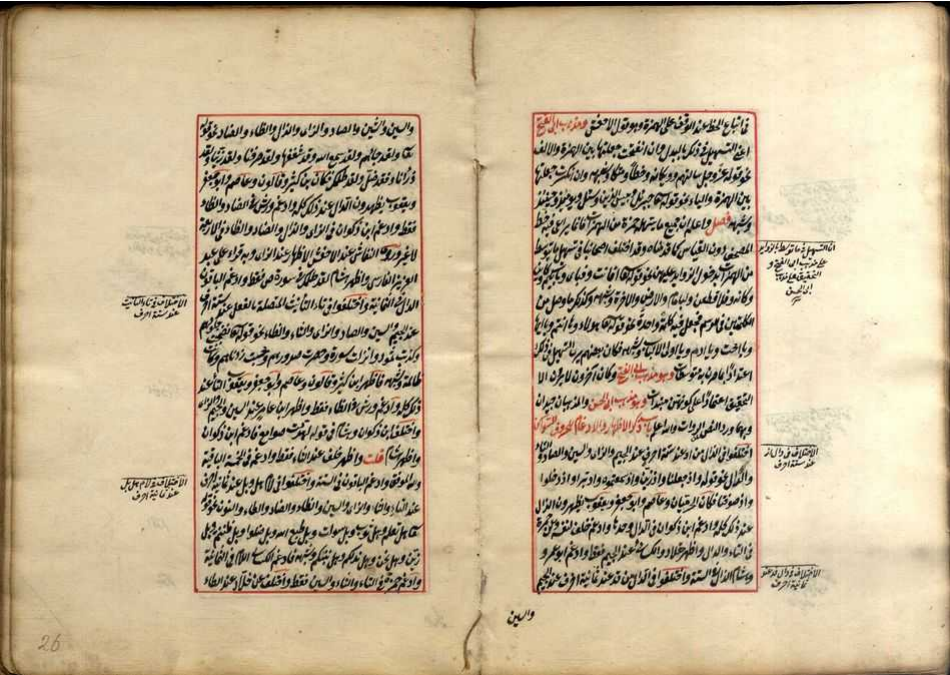 في اتباع الخط عند الوقف على الهمزة وهو قول الاخفش ومذهب ابى الفتح
اعنى التسهيل في ذكر بالبدل وان انفتحت جعلتها بين الهمزة والالف
نحو قوله عز وجل سألتهم وويكأنه وخطأ وملجأ وشبهه وان انكسرت جعلتها
بين الهمزة والياء نحو قوله جبرئيل يئس الذين وسئل ويومئذ وحينئذ
وشبهه فصل واعلم ان جميع ما يسهله حمزة من الهمزات فانما يراعى فيه خط
المصحف دون القياس كما قدمناه وقد اختلف اصحابنا في تسهيل ما يتوسط
من الهمزات بدخول الزوايد عليهن نحو قوله افانت وفباى وبأييكم
وكانه وفلاقطعن وبامام والارض والاخرة وشبهه وكذلك ما وصل من
الكلمتين في الرسم فجعل فيه كلمة واحدة نحو قوله هؤلاء وهاانتم ويا ايها
ويا اخت ويا ادم ويا اولى الالباب وشبهه فكان بعضهم يرى التسهيل في ذلك
اعتدادا بما صرن به متوسطات وهو مذهب ابى الفتح وكان آخرون لا يرون الا
التحقيق اعتمادا على كونهن مبتدات وهو مذهب ابى الحسن والمذهبان جيدان
وبهما ورد النص عن الرواة والله اعلم باب ذكر الاظهار والادغام للحروف السواكن
اختلفوا في الذال من اذ عند ستة احرف عند الجيم والزاى والسين والصاد والتاء
والدال نحو قوله واذ جعلنا واذ زين واذ سمعتموه واذ تبرا واذ دخلوا
واذ صرفنا فكان الحرميان وعاصم وابو جعفر ويعقوب يظهرون الذال
عند ذلك كله وادغم ابن ذكوان في الدال وحدها وادغم خلف لنفسه وعن حمزة
في التاء والدال واظهر خلاد والكسائى عند الجيم فقط وادغم ابو عمرو
وهشام الذال في الستة واختلفوا في الدال من قد عند ثمانية احرف عند الجيم
والسين
اما التسهيل في ما توسط بالزوايد
على مذهب ابى الفتح و
التحقيق على مذهب
ابى الحسن
الاختلاف في ذال اذ
عند ستة احرف
الاختلاف في دال قد عند
ثمانية احرف
والسين والشين والصاد والزاى والذال والظاء والضاد نحو قوله
لقد جائكم ولقد سمع الله وقد شغفها ولقد صرفنا ولقد زينا ولقد
ذرأنا وفقد ضل ولقد ظلمك فكان ابن كثير وقالون وعاصم وابو جعفر
ويعقوب يظهرون الدال عند ذلك كله وادغم ورش في الضاد والظاء
فقط وادغم ابن ذكوان في الزاى والذال والضاد والظاء في الاربعة
لا غير وروى النقاش عن الاخفش الاظهار عند الزاى وبه قرأت على عبد
العزيز الفارسى واظهر هشام لقد ظلمك في سورة ص فقط وادغم الباقون
الدال في الثمانية واختلفوا في تاء التانيث المتصلة بالفعل عند ستة احرف
عند الجيم والسين والصاد والزاى والثاء والظاء نحو قوله نضجت جلودهم
وكذبت ثمود وانزلت سورة وحصرت صدورهم وخبت زدناهم وكانت
ظالمة وشبهه فاظهر ابن كثير وقالون وعاصم وابو جعفر ويعقوب التاء عند
ذلك كله وادغم ورش في الظاء فقط واظهر ابن عامر عند السين والجيم والزاى
واختلف ابن ذكوان وهشام في قوله لهدمت صوامع فادغم ابن ذكوان
واظهر هشام قلت واظهر خلف عند الثاء فقط وادغم في الخمسة الباقية
والله الموفق وادغم الباقون في الستة واختلفوا في لام هل وبل عند ثمانية احرف
عند التاء والثاء والزاى والسين والطاء والظاء والضاد والنون نحو قوله
هل تعلم وهل ثوب وبل سولت وبل طبع الله وبل ضلوا وبل ظننتم وبل
زين وهل نحن وهل ندلكم وهل ننبئكم وشبهه فادغم الكسائى اللام في الثمانية
وادغم حمزة في التاء والثاء والسين فقط واختلف عن خلاد عند الطاء
الاختلاف في تاء التانيث
عند ستة احرف
الاختلاف في لام هل بل
عند ثمانية احرف
26